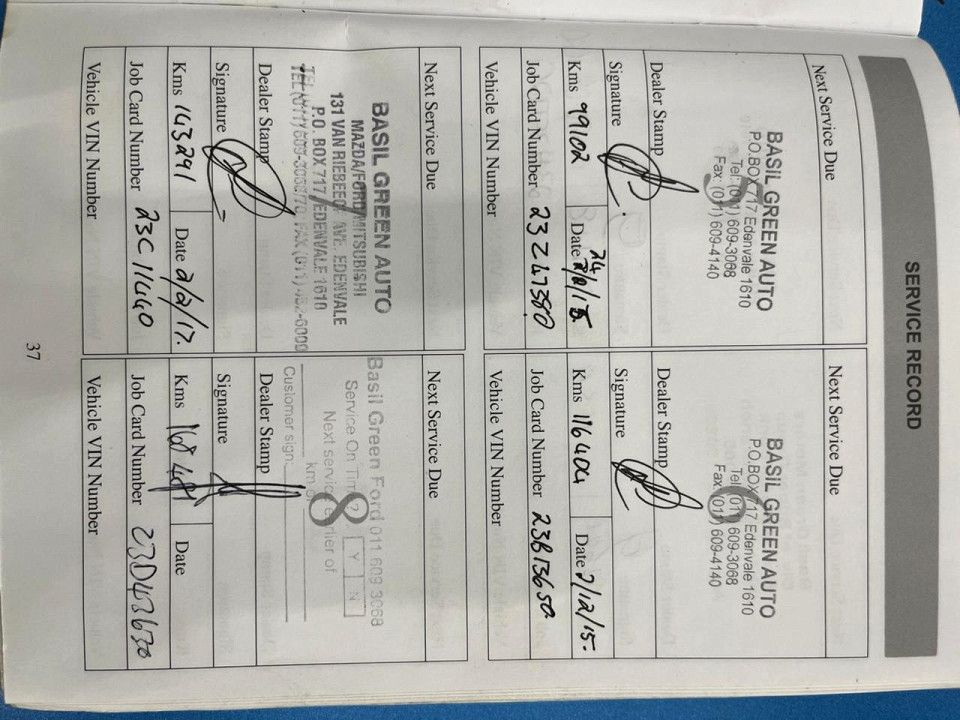 SERVICE RECORD
Next Service Due
BASIL GREEN AUTO
P.O.BOX 717 Edenvale 1610
Tel: (011) 609-3068
Fax: (011) 609-4140
Dealer Stamp
Signature
Kms 99102 Date 24/2/15
Job Card Number 23Z47580
Vehicle VIN Number
Next Service Due
BASIL GREEN AUTO
P.O.BOX 717 Edenvale 1610
Tel: (011) 609-3068
Fax: (011) 609-4140
Dealer Stamp
Signature
Kms 116404 Date 2/12/15.
Job Card Number 23B13650
Vehicle VIN Number
Next Service Due
BASIL GREEN AUTO
MAZDA/FORD/MITSUBISHI
131 VAN RIEBEECK AVE EDENVALE
P.O. BOX 717 EDENVALE 1610
TEL (011) 609-3068/70 FAX (011) 452-6000
Dealer Stamp
Signature
Kms 143291 Date 2/2/17.
Job Card Number 23C11440
Vehicle VIN Number
Next Service Due
Basil Green Ford 011 609 3068
Service On Time? Y N
Next service earlier of
km or
Customer sign
8
Dealer Stamp
Signature
Kms 168 Date
Job Card Number 23D43630
Vehicle VIN Number
37